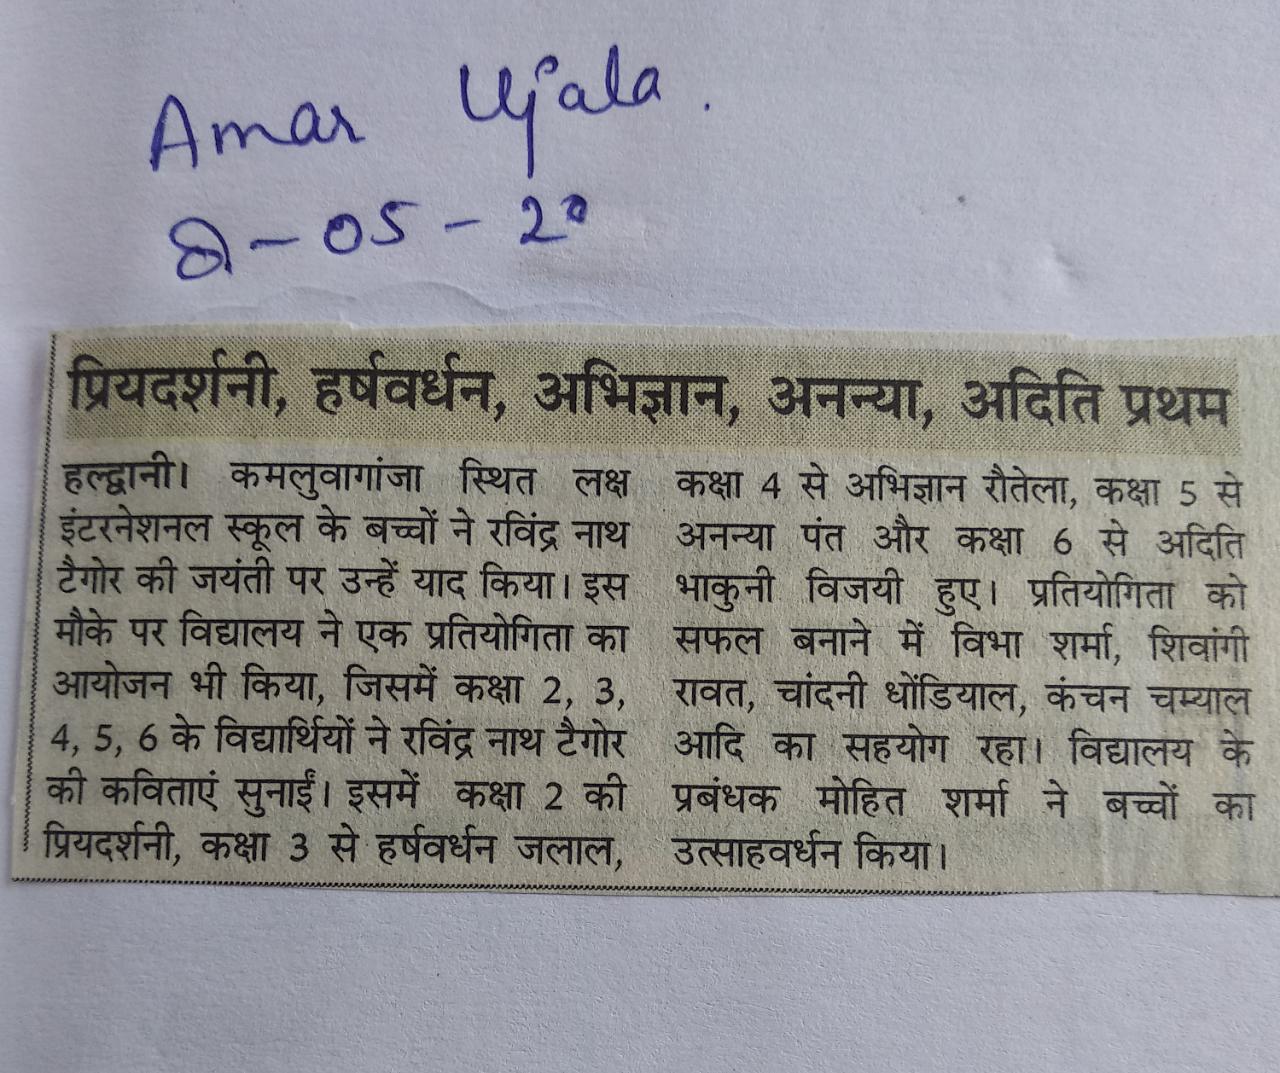 Amar Ujala.
8-05-20
प्रियदर्शनी, हर्षवर्धन, अभिज्ञान, अनन्या, अदिति प्रथम
हल्द्वानी। कमलुवागांजा स्थित लक्ष
इंटरनेशनल स्कूल के बच्चों ने रविंद्र नाथ
टैगोर की जयंती पर उन्हें याद किया। इस
मौके पर विद्यालय ने एक प्रतियोगिता का
आयोजन भी किया, जिसमें कक्षा 2, 3,
4, 5, 6 के विद्यार्थियों ने रविंद्र नाथ टैगोर
की कविताएं सुनाईं। इसमें कक्षा 2 की
प्रियदर्शनी, कक्षा 3 से हर्षवर्धन जलाल,
कक्षा 4 से अभिज्ञान रौतेला, कक्षा 5 से
अनन्या पंत और कक्षा 6 से अदिति
भाकुनी विजयी हुए। प्रतियोगिता को
सफल बनाने में विभा शर्मा, शिवांगी
रावत, चांदनी धोंडियाल, कंचन चम्याल
आदि का सहयोग रहा। विद्यालय के
प्रबंधक मोहित शर्मा ने बच्चों का
उत्साहवर्धन किया।